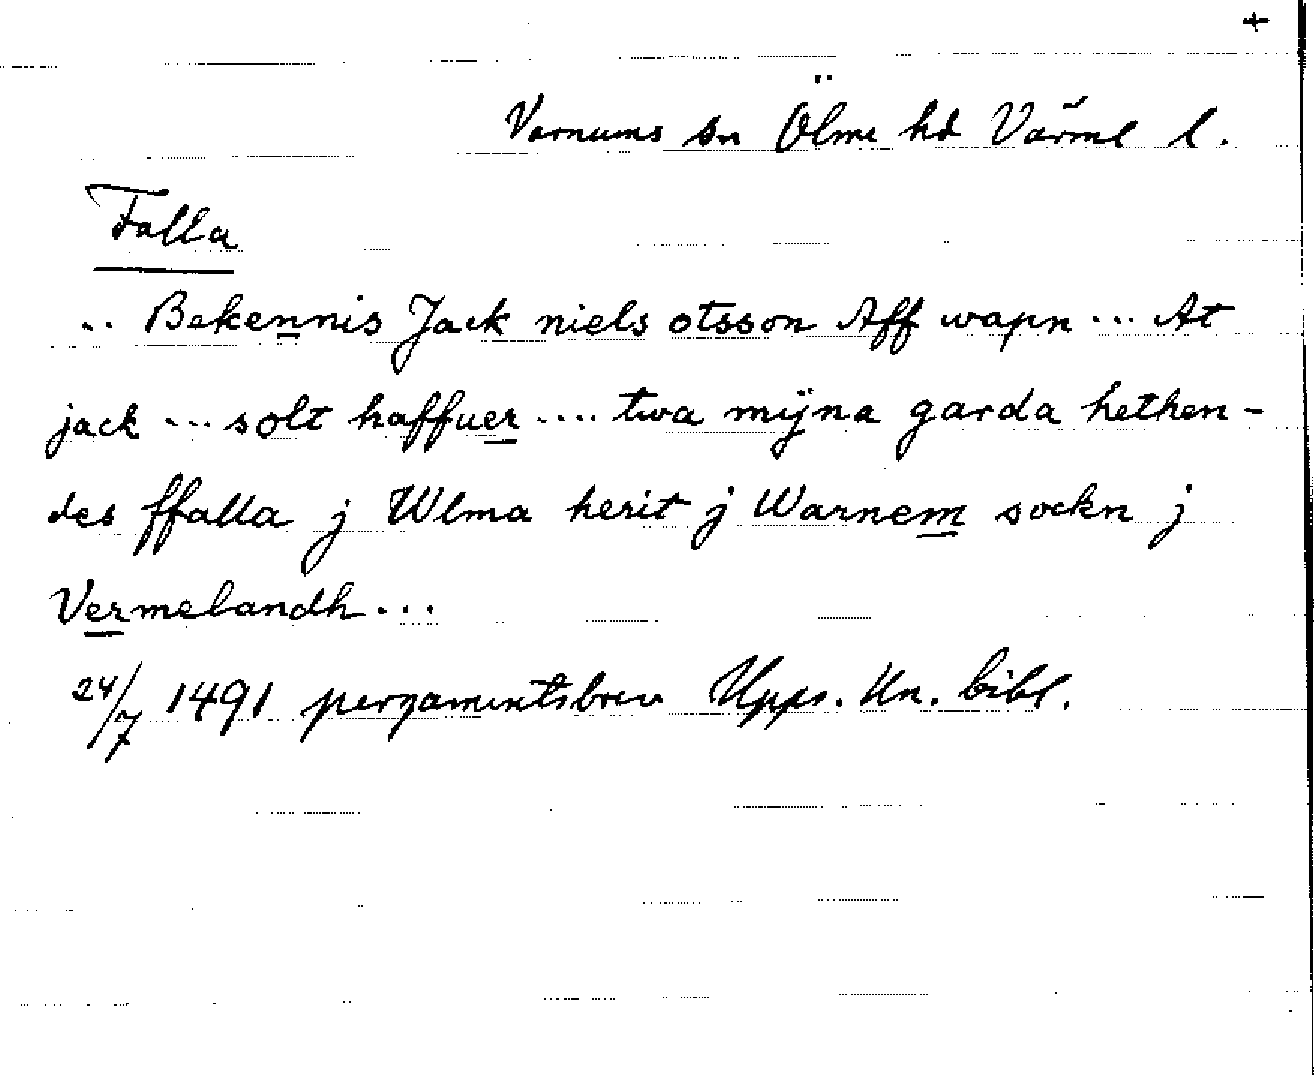 +
Varnums sn Ölme hd Värml l.
Falla
.. Bekennis Jack niels otsson Aff wapn ... At
jack ... solt haffuer .... twa mÿna garda hethen-
des ffalla j Wlma herit j Warnem sockn j
Vermelandh ...
24/7 1491 pergamentsbrev Upps. Un. bibl.